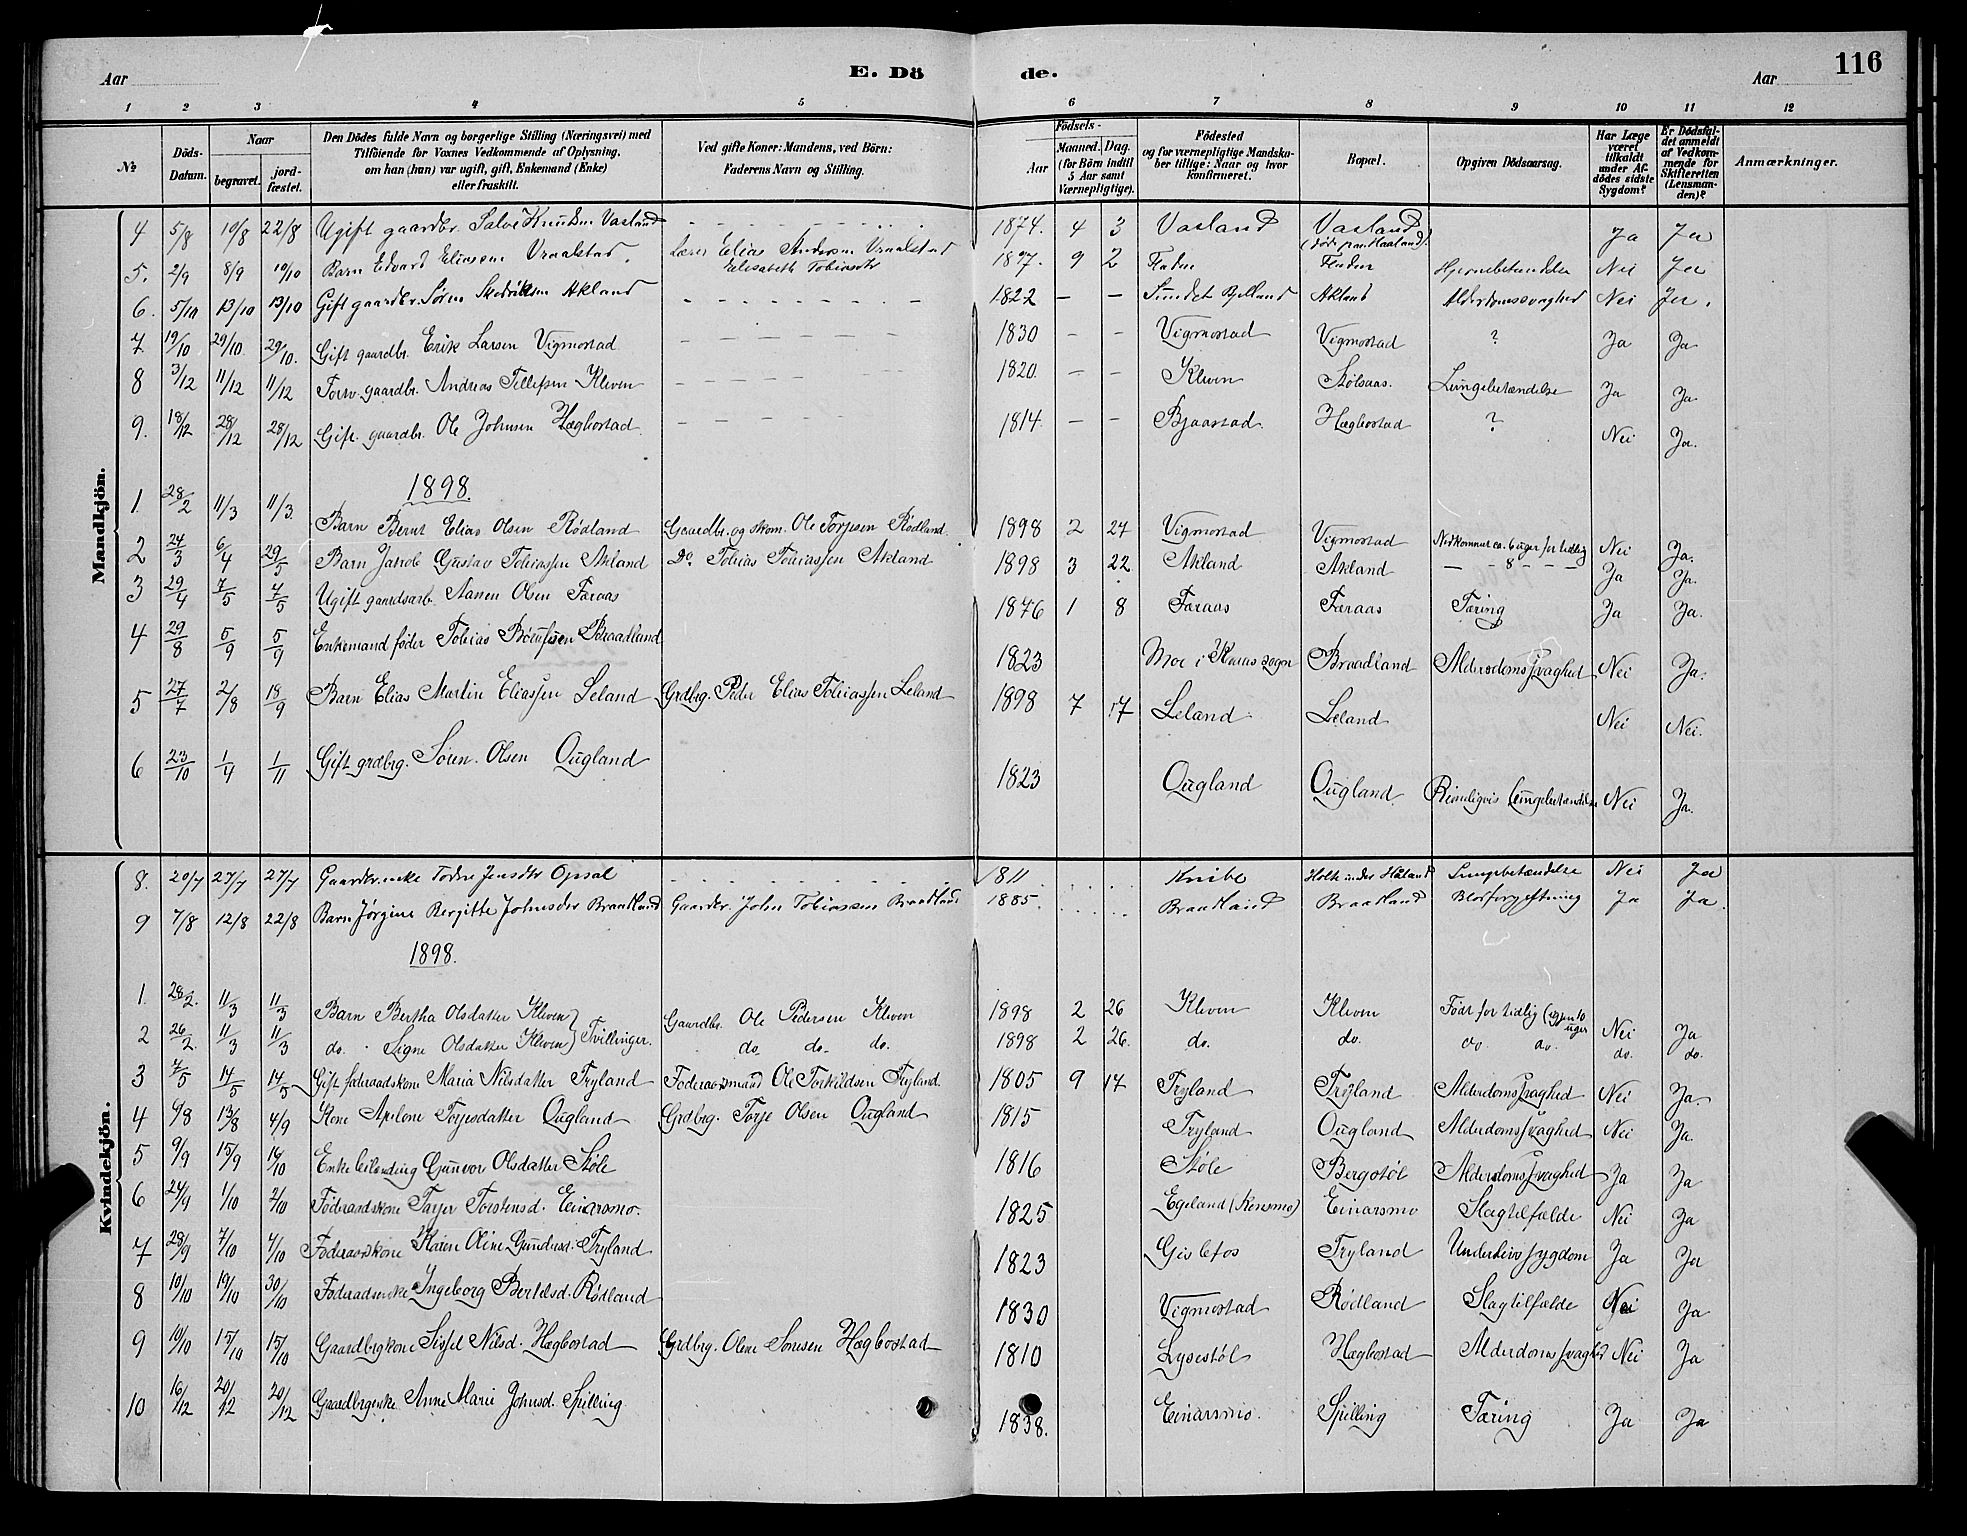 116
Aar E. Dö de. Aar
1 2 3 4 5 6 7 8 9 10 11 12
No Döds-Datum. Naar begravet. jordfæstet. Den Dödes fulde Navn og borgerlige Stilling (Næringsvei) med Tilföiende for Voxnes Vedkommende af Oplysning, om han (hun) var ugift, gift, Enkemand (Enke) eller fraskilt. Ved gifte Koner: Mandens, ved Börn: Faderens Navn og Stilling. Födsels- Aar Maaned. Dag. (for Börn indtil 5 Aar samt Værnepligtige). Födested og for værnepligtige Mandskaber tillige: Naar og hvor Konfirmeret. Bopæl. Opgiven Dödsaarsag. Har Læge været tilkaldt under Afdödes sidste Sygdom? Er Dödsfaldet anmeldt af Vedkommende for Skifteretten (Lensmanden)? Anmærkninger.
Mandkjön.
4 5/8 10/8 22/8 Ugift gaardbr. Salve Knudsen Vasland 1874. 4 3 Vasland Vasland Ja Ja
5. 2/9 8/9 10/10 Barn Edvard Eliassen Vraalstad. Lærer Elias Andersen Vraalstad Elisabeth Tobiasdtr 1897. 9 2 Finden Finden Hjernebetændelse Nei Ja
6. 5/10 13/10 13/10 Gift gaardbr. Søren Akland 1822 – – Sundet Bjelland Akland Alderdomssvaghed Nei Ja.
7. 19/10 29/10. 29/10. Gift gaardbr. Erik Larsen Vigmostad 1830 – – Vigmostad Vigmostad ? Ja Ja
8 3/12 11/12 11/12 Forv. gaardbr. Andreas Tellefsen Kleven 1820. – – Kleven Stølsaas. Lungebetændelse Ja Ja
9. 18/12 28/12 28/12 Gift. gaardbr. Ole Johnsen Hægbostad 1814. – – Bjaastad. Hægbostad ? Nei Ja.
1898.
1. 28/2 11/3 11/3. Barn Bernt Elias Olsen Rødland Gaardbr. og skom. Ole Torjesen Rødland. 1898 2 24 Vigmostad Vigmostad Nedkommet ca. 6 uger for tidlig Nei Ja.
2 24/3 6/4 29/5 Barn Jakob Gustav Tobiassen Akland Do. Tobias Tobiassen Akland 1898 3 22 Akland Akland – – 8 – – – Ja Ja.
3 29/4 7/5 7/5 Ugift gaardsarb. Aanen Olsen Faraas 1876 1 8 Faraas Faraas Tæring Ja Ja.
4 29/8 5/9 5/9 Enkemand føder. Tobias Børufsen Braadland 1823 Moe i sogn Braadland Alderdomssvaghed Nei Ja.
5 27/7 2/8 18/9 Barn Elias Martin Eliassen Leland Grdbrg. Peder Elias Tobiassen Leland 1898 7 17 Leland Leland Nei Nei.
6 23/10 1/4 1/11 Gift grdbrg. Sören Olsen Ougland 1823 Ougland Ougland. Rimeligvis Lungebetændelse Nei Ja.
Kvindekjön.
8. 20/7 27/7 27/7 Gaardbr.enke Todne Jensdtr Opsal 1811 Knibe Holte Lungebetændelse Nei Ja
9 7/8 12/8 22/8 Barn Jørgine Bergitte Johnsdtr Braadland Gaardbr. John Tobiassen Braadland 1885. Braadland Braadland Blodforgiftning Ja Ja.
1898.
1. 28/2. 11/3 11/3 Barn Bertha Olsdatter Kleven Gaardbr. Ole Pedersen Kleven 1898 2 26 Kleven Kleven Født for tidlig (igjen 10 uger Nei Ja
2 26/2. 11/3 11/3 do. Signe Olsdatter Kleven } Tvillinger. do. do. do. 1898 2 26. do. do. do. do. do. do.
3 7/5 14/5 14/5 Gift føderaadskone Maria Nilsdatter Tryland Føderaadsmand Ole Torkildsen Tryland. 1805 9 14 Tryland Tryland Alderdomssvaghed Nei Ja.
4 9/8 13/8 4/9 Kone Apelone Torjesdatter Ougland Grdbrg. Torje Olsen Ougland 1815 Tryland Ougland Alderdomssvaghed Nei Ja.
5 9/9 15/9 10/10 Enke leilending Gunvor Olsdatter Støle 1816 Støle Bergstøl Alderdomssvaghed Ja Ja
6 24/9 1/10 2/10 Föderaadskone Tarjer Torstensd. Einarsmo. 1825 Egeland (Konsmo) Einarsmo Slagtilfælde Nei Ja
7 28/9 7/10 4/10 Føderaadskone Karen Oline Gundersd. Tryland 1823 Gislefos Tryland Underlivssygdom Ja Ja
8 10/10 19/10 30/10 Føderaadsenke Ingeborg Bertelsd. Rødland 1830 Vigmostad Rødland Slagtilfælde Nei Ja
9 10/10 15/10 15/10 Gaardbrgkone Sissel Nilsd. Hægbostad Grdbrg. Olene Sørensen Hægbostad 1810 Lysestøl Hægbostad Alderdomssvaghed Nei Ja
10 16/12 20/12 20/12 Gaardbrgenke Anne Marie Johnsd. Spilling 1838. Einarsmo. Spilling Tæring Ja Ja